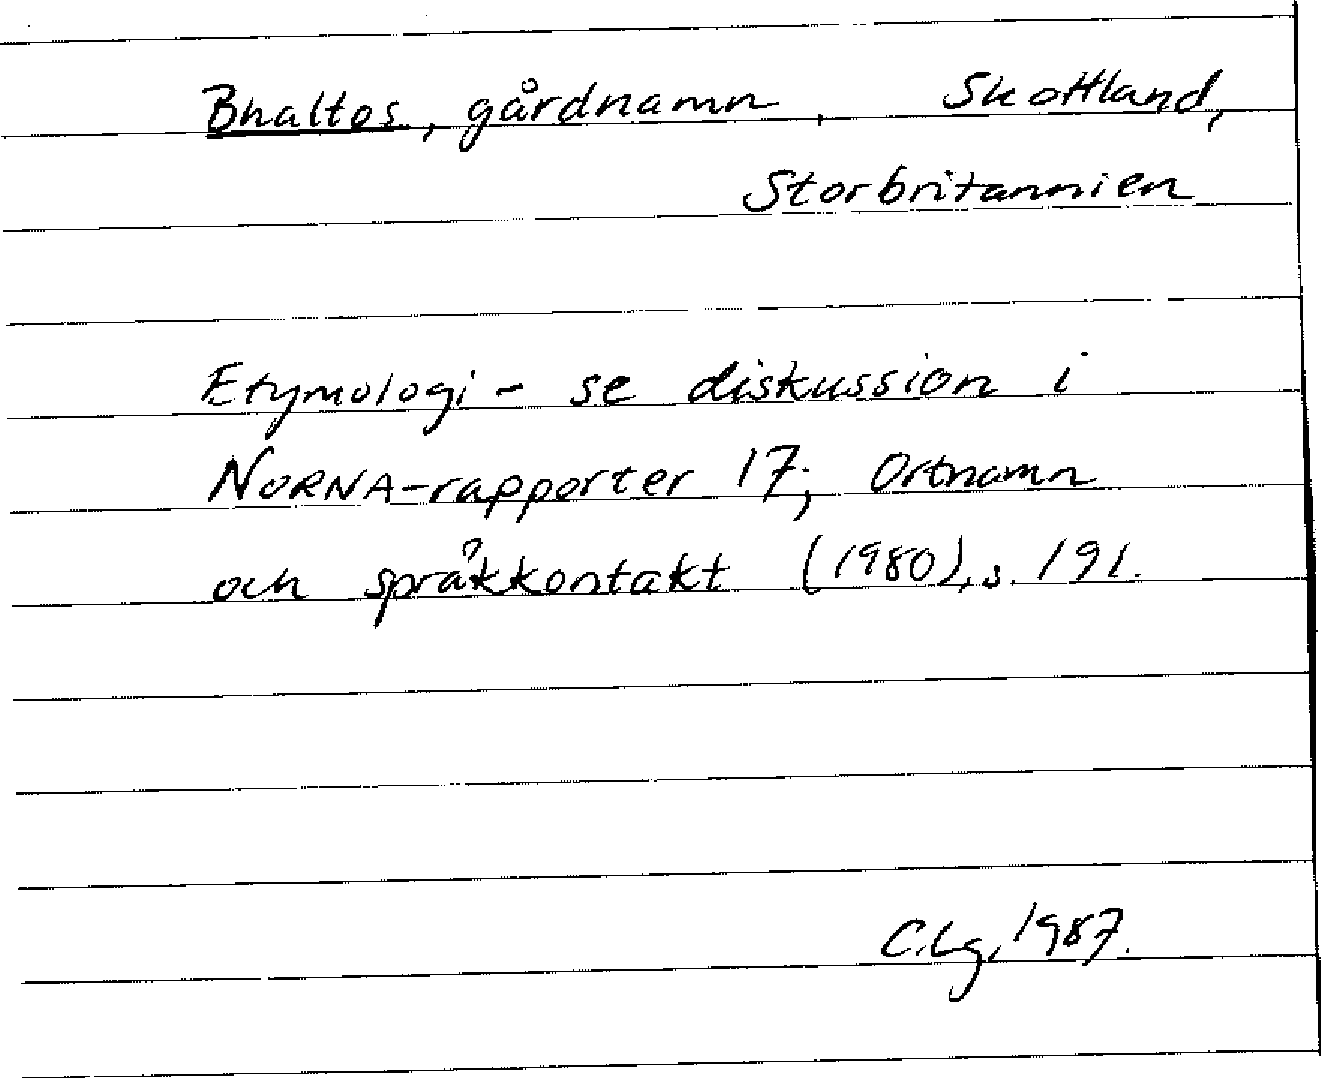 Bhaltos, gårdnamn, Skottland,
Storbritannien
Etymologi - se diskussion i
NORNA-rapporter 17; Ortnamn
och språkkontakt (1980), s. 191.
C.Lg, 1987.